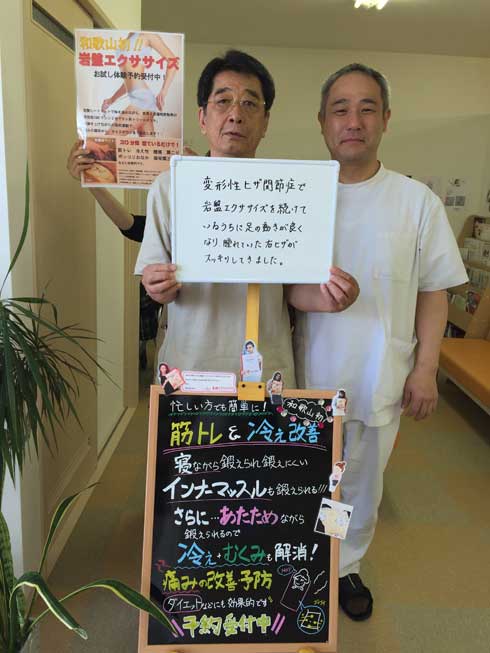 和歌山初!!
岩盤エクササイズ
お試し体験予約受付中!
30分間 寝ているだけで!
変形性ヒザ関節症で
岩盤エクササイズを続けて
いるうちに足の動きが良く
なり、腫れていた右ヒザが
スッキリしてきました。
忙しい方でも簡単に!
和歌山初
筋トレ & 冷え改善
寝ながら鍛えられ鍛えにくい
インナーマッスルも鍛えられる!!!
さらに…あたためながら
鍛えられるので
冷え+むくみも解消!
痛みの改善予防
ダイエットなどにも効果的です
予約受付中!